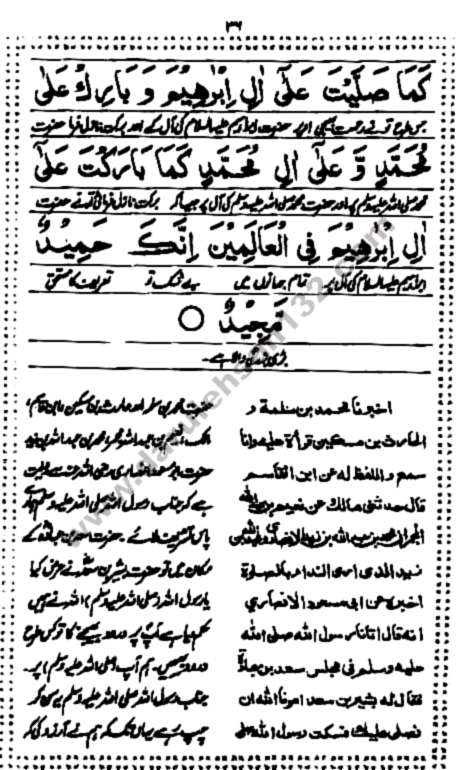 ۳۶
كَمَا صَلَّيْتَ عَلٰٓى اٰلِ اِبْرٰهِيْمَ وَ بَارِكْ عَلٰى
جس طرح تو نے رحمت بھیجی اوپر حضرت ابراہیم علیہ السلام کی آل کے اور برکت نازل فرما حضرت
مُحَمَّدٍ وَّ عَلٰٓى اٰلِ مُحَمَّدٍ كَمَا بَارَكْتَ عَلٰٓى
محمد صلی اللہ علیہ وسلم پر اور حضرت محمد صلی اللہ علیہ وسلم کی آل پر جیسا کہ برکت نازل فرمائی تو نے حضرت
اٰلِ اِبْرٰهِيْمَ فِى الْعَالَمِيْنَ اِنَّكَ حَمِيْدٌ
ابراہیم علیہ السلام کی آل پر تمام جہانوں میں بے شک تو تعریف کا مستحق
مَّجِيْدٌ ○
بڑی بزرگی والا ہے۔
اخبرنا محمد بن سلمة و
الحارث بن مسكين قراءة عليه وانا
سمع واللفظ له عن ابن القاسم
قال حدثنى مالك عن نعيم بن عبد الله
المجمر ان محمد بن عبد الله بن زيد الانصارى وعبد الله بن
زيد الذى ارى النداء بالصلوة
اخبره عن ابى مسعود الانصارى
انه قال اتانا رسول الله صلى الله
عليه وسلم فى مجلس سعد بن عبادة
فقال له بشير بن سعد امرنا الله ان
نصلى عليك فسكت رسول الله صلى
حضرت محمد بن سلمہ اور حارث بن مسکین، ابن قاسم،
مالک، نعیم بن عبد اللہ مجمر، محمد بن عبد اللہ بن زید
حضرت ابو مسعود انصاری رضی اللہ عنہ سے روایت
ہے کہ جناب رسول اللہ صلی اللہ علیہ وسلم ہمارے
پاس تشریف لائے۔ حضرت سعد بن عبادہ کے
مکان میں تو حضرت بشیر بن سعد نے عرض کیا
یا رسول اللہ (صلی اللہ علیہ وسلم) اللہ نے ہمیں
حکم دیا ہے آپ پر درود بھیجنے کا تو کس طرح
درود بھیجیں۔ ہم آپ (صلی اللہ علیہ وسلم) پر۔
جناب رسول اللہ صلی اللہ علیہ وسلم یہ سن کر
چپ رہے یہاں تک کہ ہم نے آرزو کی کہ
www.darulehsan132.com